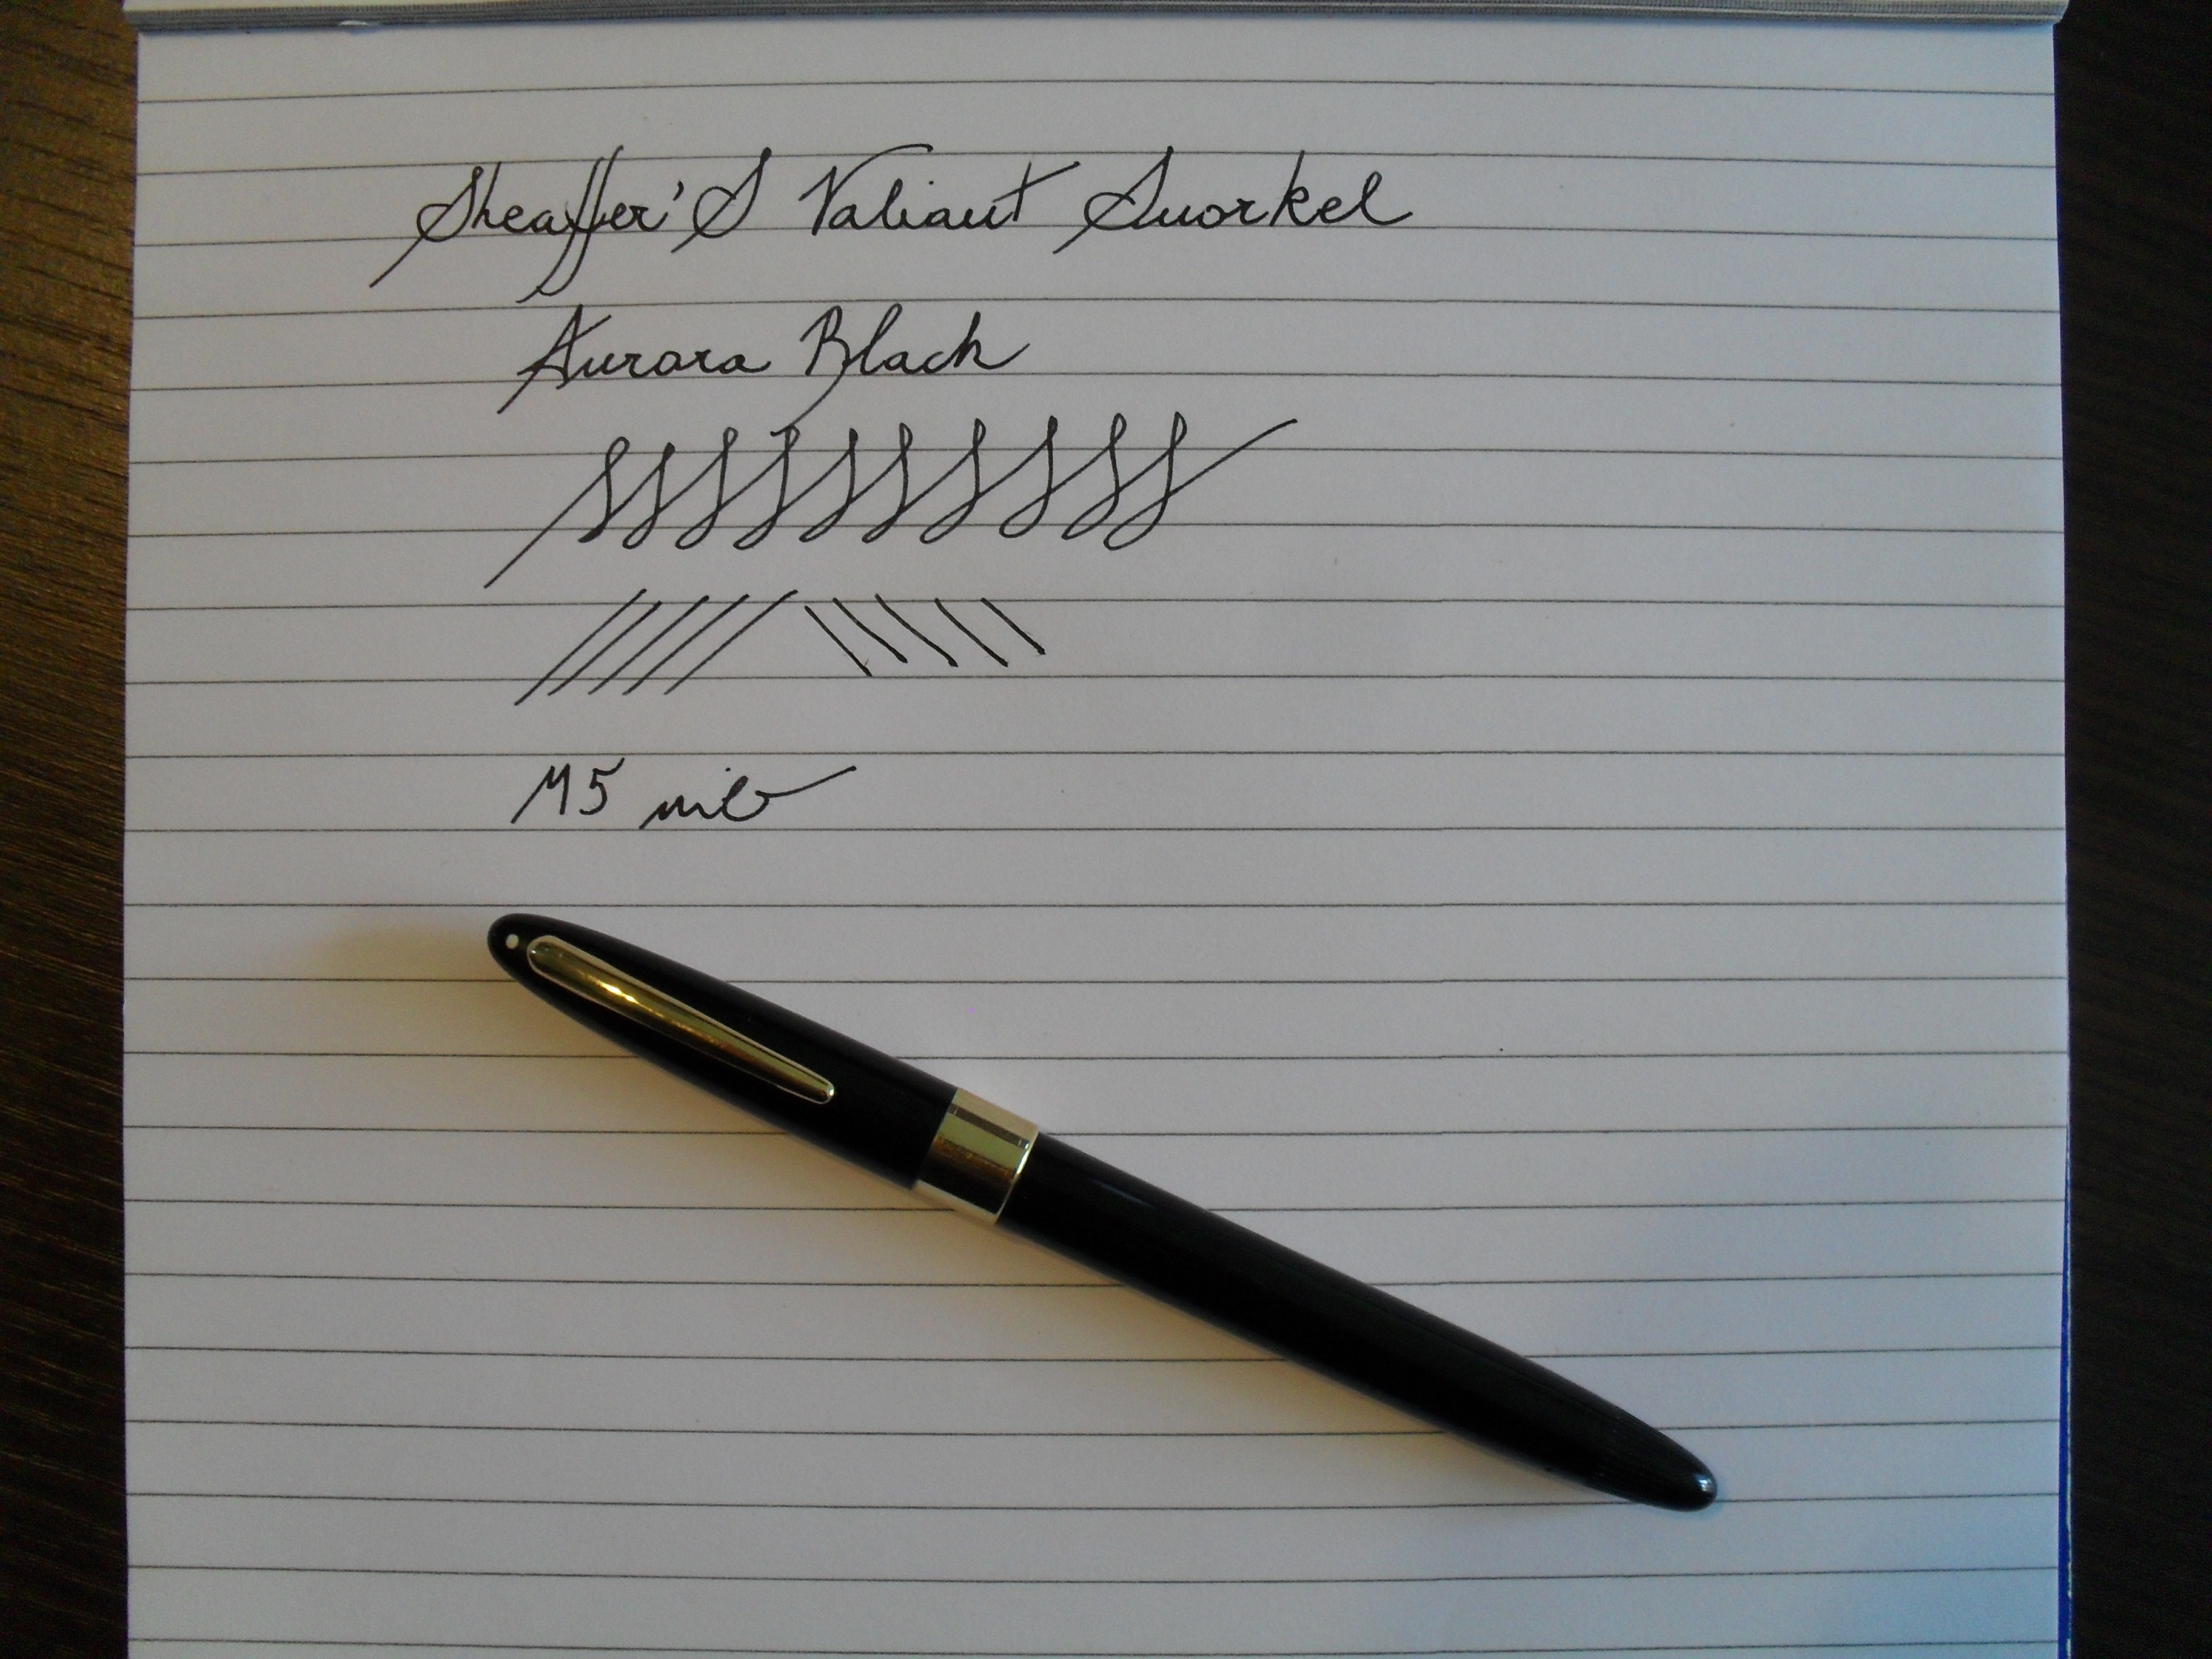 Sheaffer'S Valiant Snorkel
Aurora Black
M5 nib